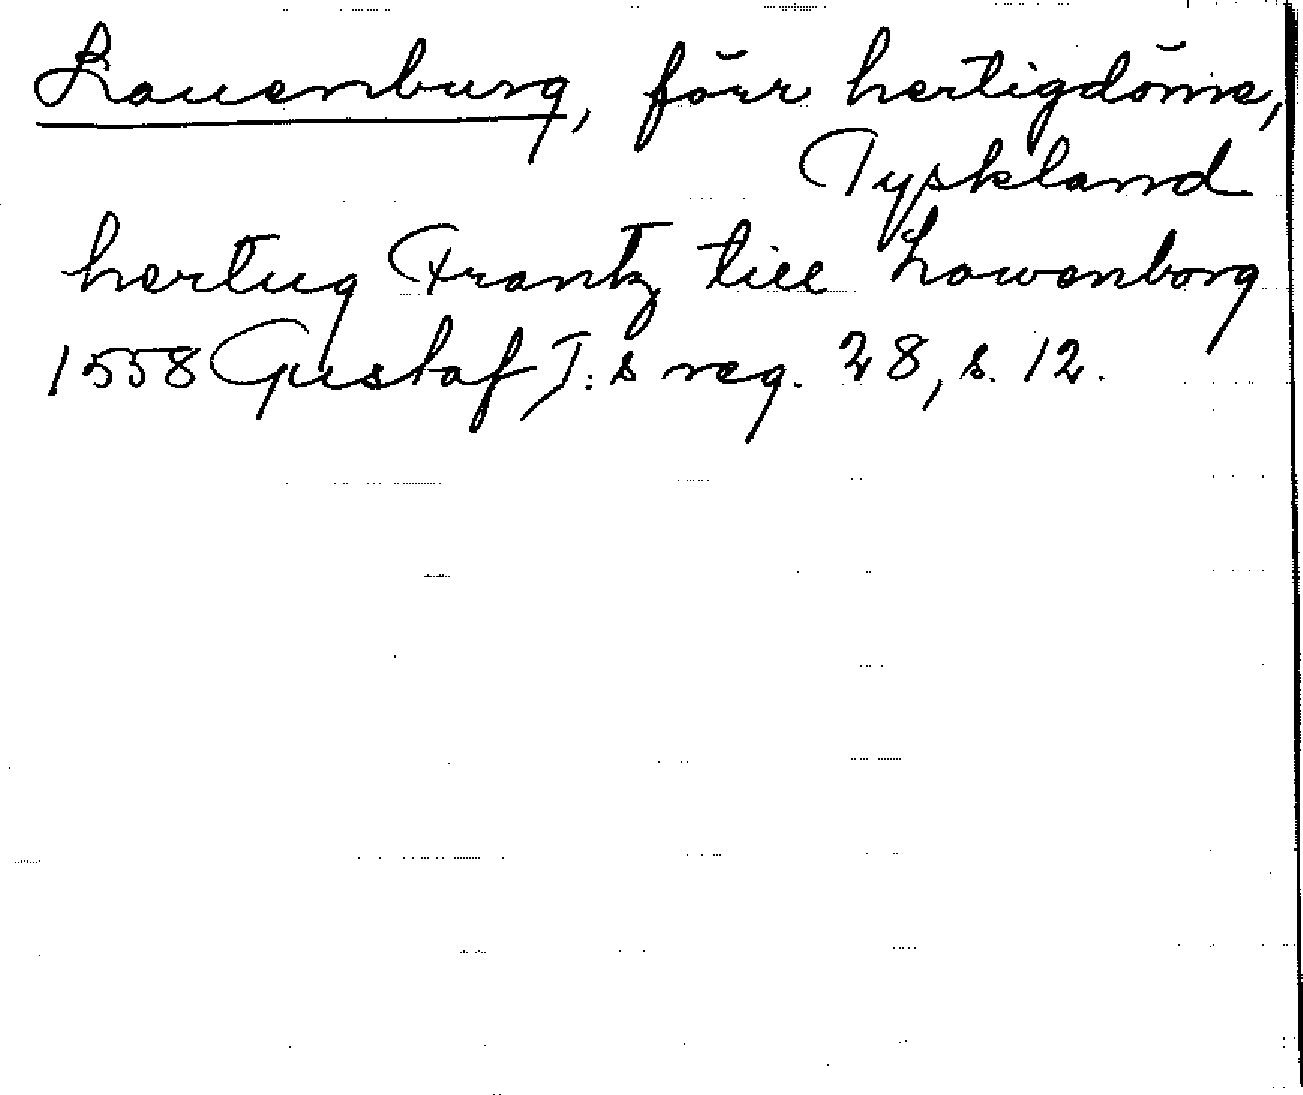 Lauenburg, förr hertigdöme,
Tyskland
hertug Frantz till Lowenborg
1558 Gustaf I:s reg. 28, s. 12.